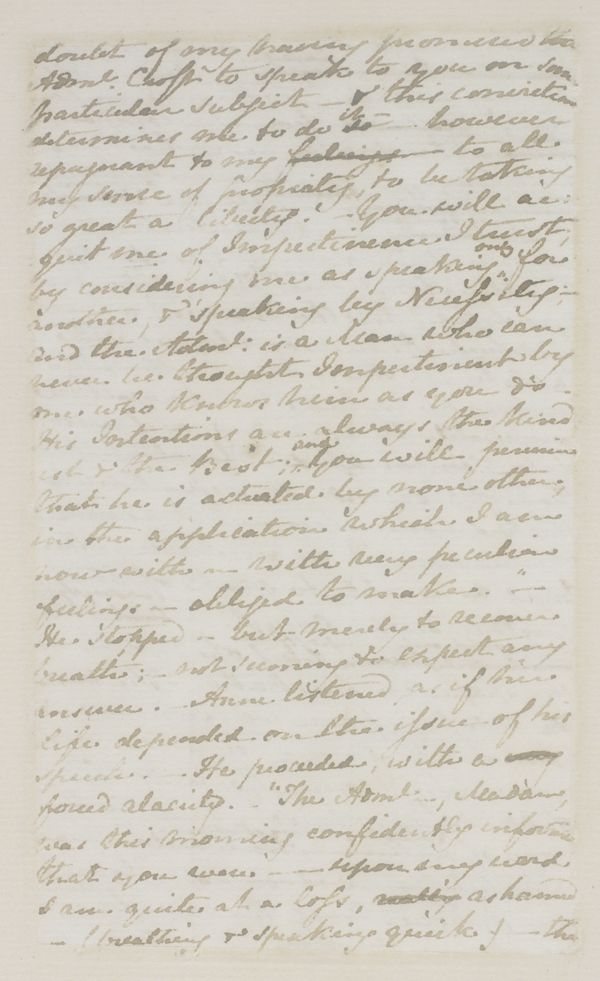 doubt of my having promised the
Adml. Croft to speak to you on some
particular subject — & this conviction
determines me to do it — however
repugnant to my feelings to all
my sense of propriety, to be taking
so great a liberty. — You will ac:
quit me of Impertinence I trust,
by considering me as speaking only for
another, & speaking by Necessity; —
and the Adml. is a Man who can
never be thought Impertinent by
one who knows him as you do —
His Intentions are always the kind
est & the Best; and you will perceive
that he is actuated by none other,
in the application which I am
now with — with very peculiar
feelings — obliged to make." —
He stopped — but merely to recover
breath; — not seeming to expect any
answer. — Anne listened, as if her
Life depended on the issue of his
speech. — He proceeded, with a
forced alacrity. — "The Adml. —, Madam,
was this morning confidently informed
that you were — — upon my word
I am quite at a loss, ashamed
— (breathing & speaking quick) — the